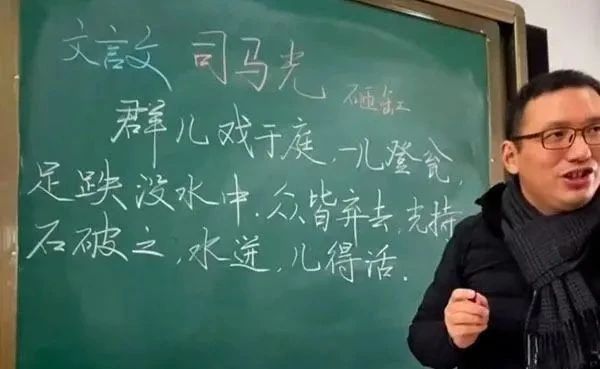 文言文 司马光 砸缸
群儿戏于庭,一儿登瓮,
足跌没水中.众皆弃去,光持
石破之,水迸,儿得活.